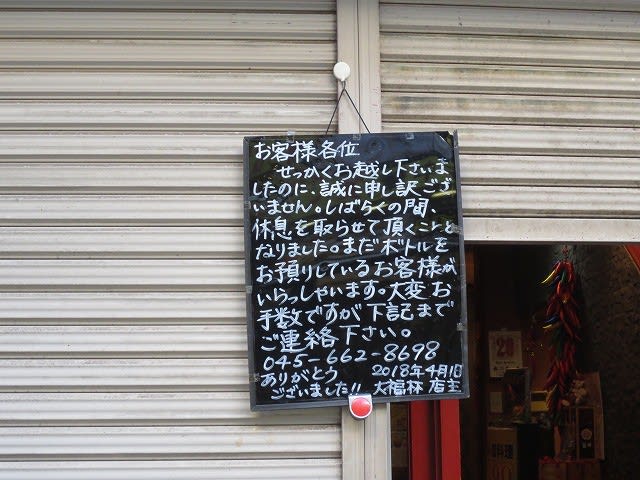 お客様各位
せっかくお越し下さいま
したのに、誠に申し訳ござ
いません。しばらくの間、
休息を取らせて頂くことと
なりました。まだボトルを
お預りしているお客様が
いらっしゃいます。大変お
手数ですが下記まで
ご連絡下さい。
045-662-8698
ありがとう 2018年4月1日
ございました!! 大福林 店主
20